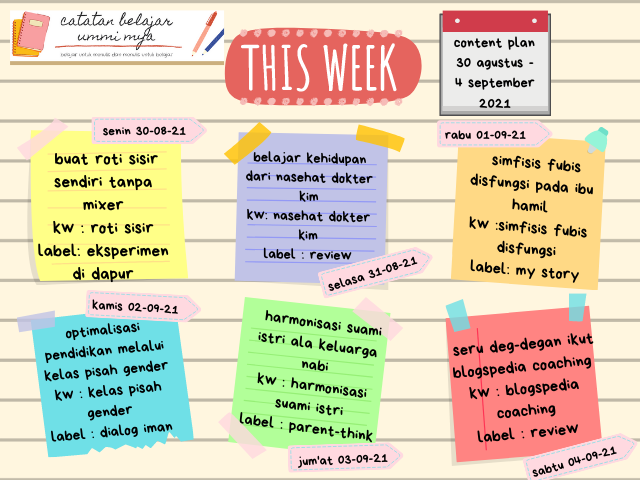 catatan belajar
ummi mya
belajar untuk menulis dan menulis untuk belajar
THIS WEEK
content plan
30 agustus -
4 september
2021
senin 30-08-21
buat roti sisir
sendiri tanpa
mixer
kw : roti sisir
label: eksperimen
di dapur
belajar kehidupan
dari nasehat dokter
kim
kw: nasehat dokter
kim
label : review
selasa 31-08-21
rabu 01-09-21
simfisis fubis
disfungsi pada ibu
hamil
kw :simfisis fubis
disfungsi
label: my story
kamis 02-09-21
optimalisasi
pendidikan melalui
kelas pisah gender
kw : kelas pisah
gender
label : dialog iman
harmonisasi suami
istri ala keluarga
nabi
kw : harmonisasi
suami istri
label : parent-think
jum'at 03-09-21
seru deg-degan ikut
blogspedia coaching
kw : blogspedia
coaching
label : review
sabtu 04-09-21